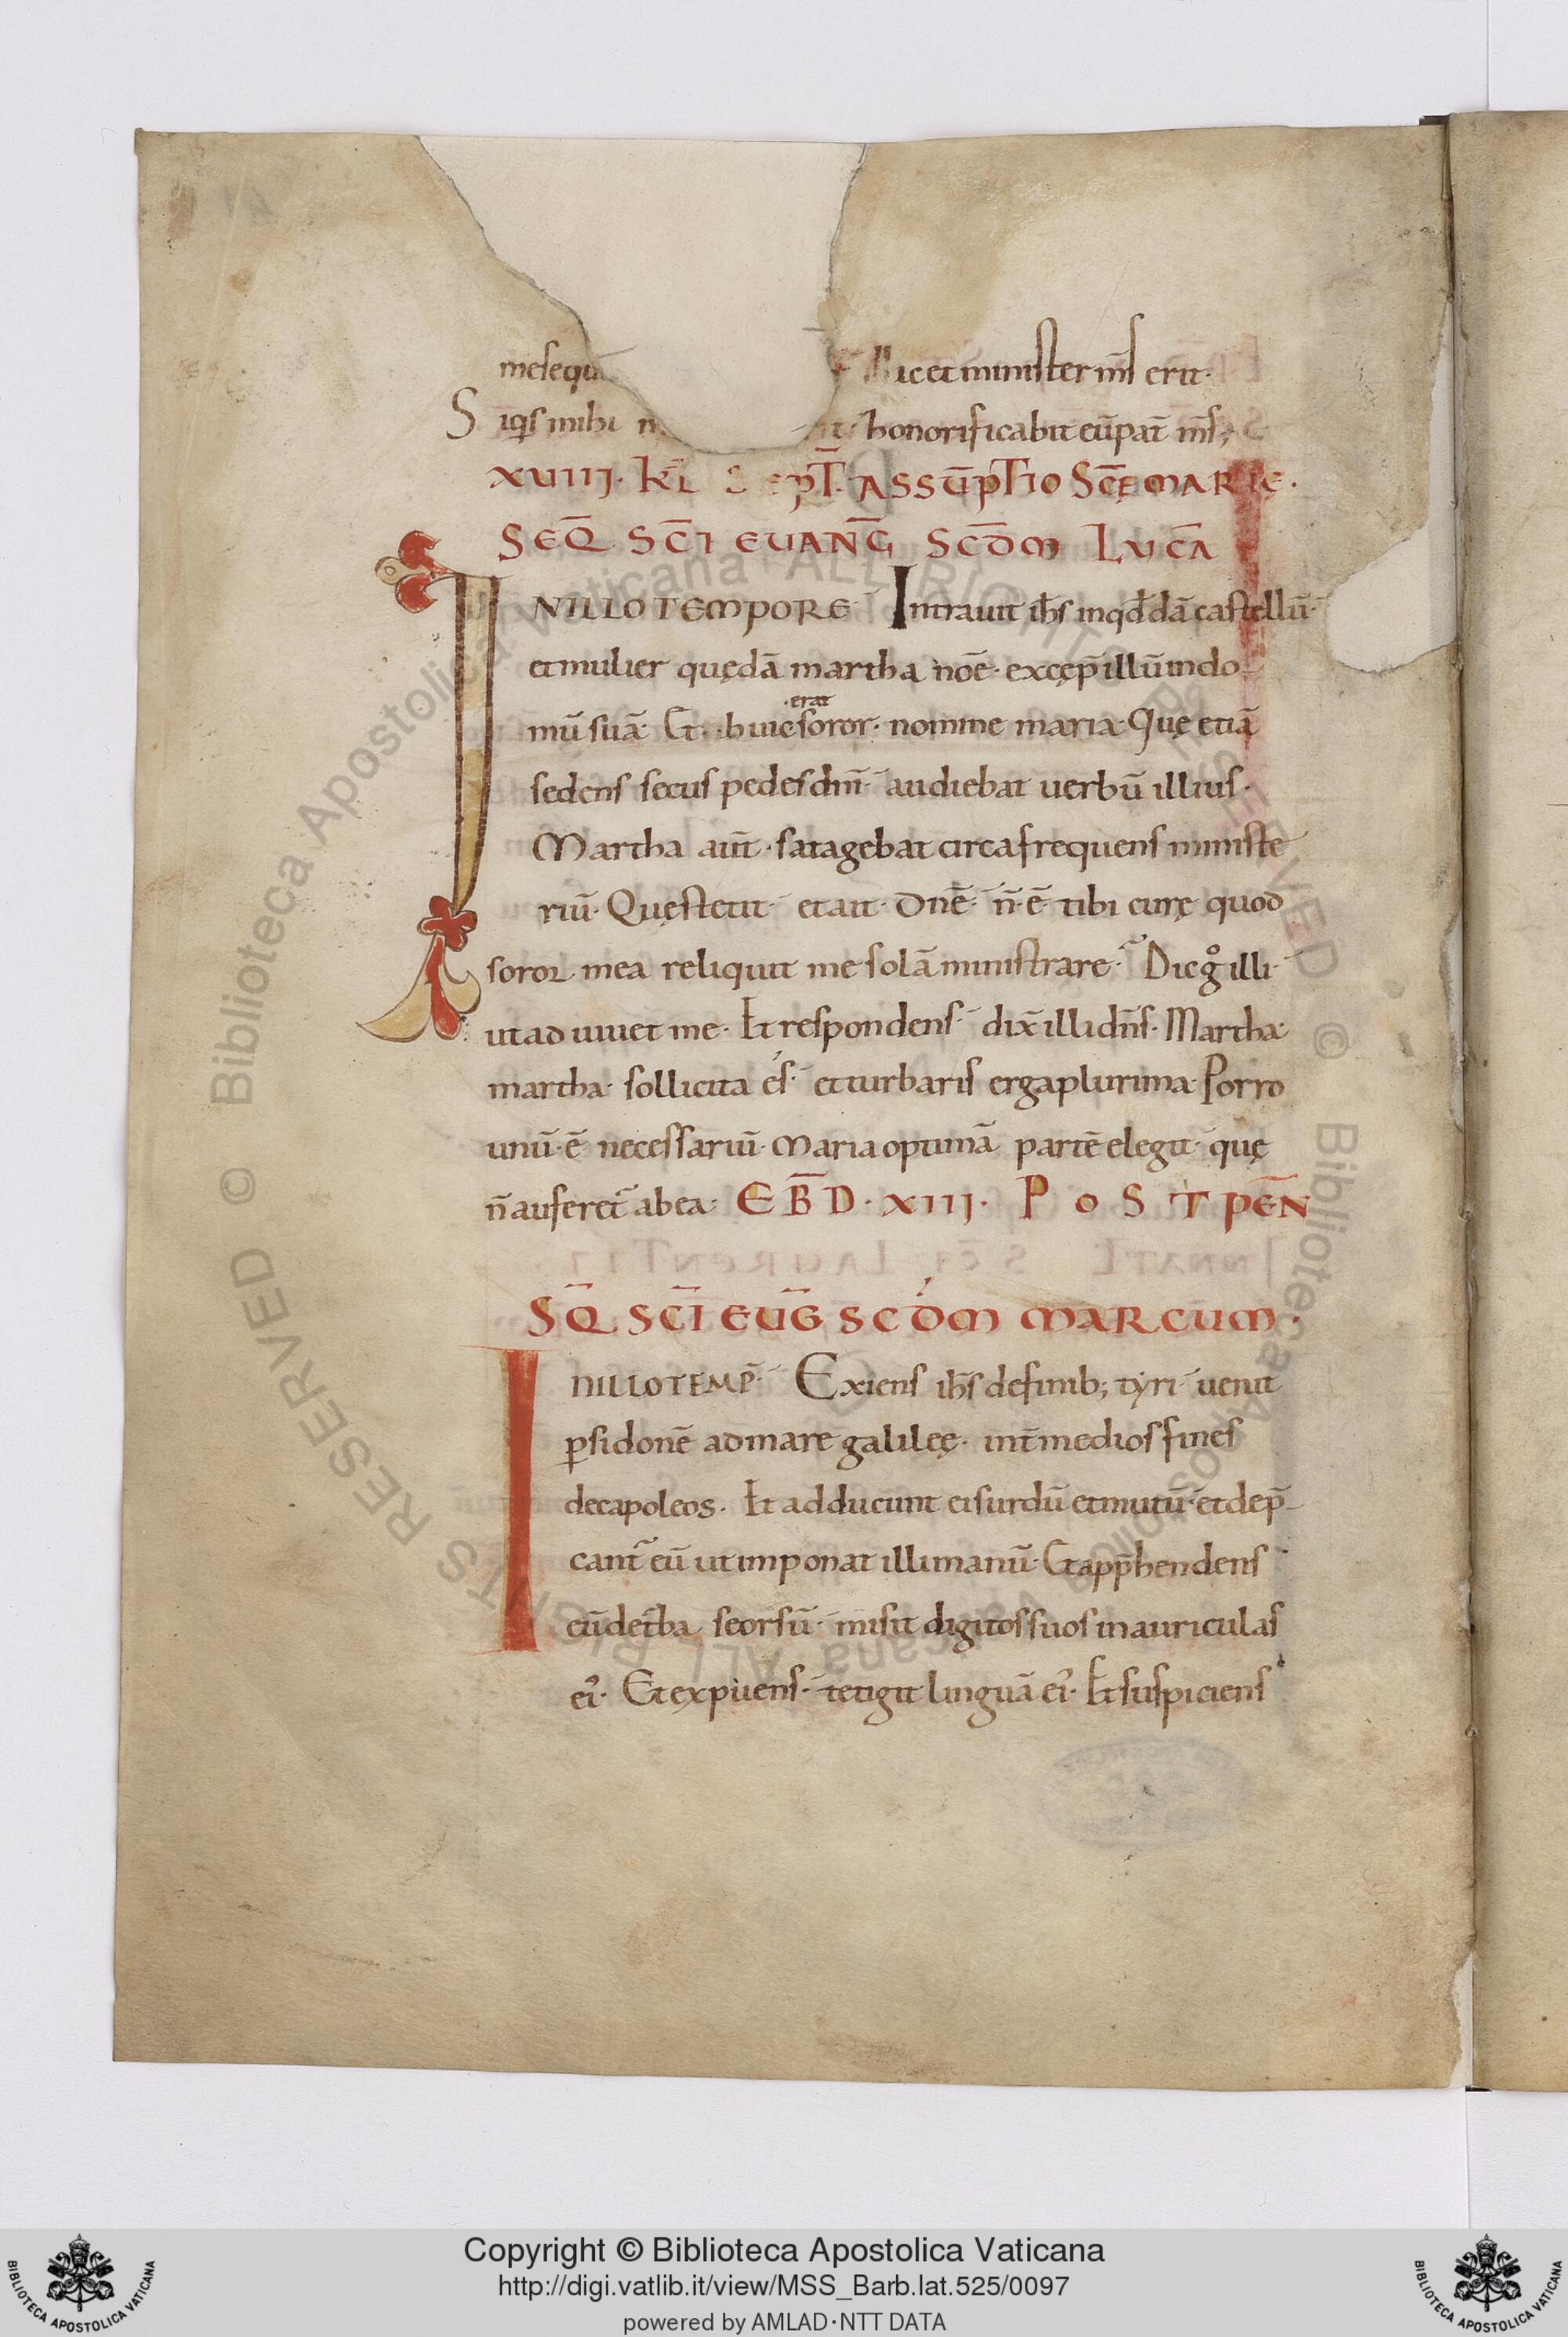 mesequ illic et minister m̄s erit·
Siqͥs mihi m it· honorificabit eū pat̄ m̄s;
XVIIIJ· KL̄ SEPT̄· ASSŪPTIO SC̄Ę MARIĘ·
SEQ̄ SC̄I EVANG̅ SC̄DM LVCĀ
IN ILLO TEMPORE· Intrauit ih̄s in qđdā castellū·
et mulier quędā martha nōe· excęp̄ illū in do
mū suā· Et· huic ·erat soror· nomine maria· Quę etiā
sedens secus pedes dn̄i· audiebat uerbū illius·
Martha aūt· satagebat circa frequens ministe
riū· Quę stetit· et ait· Dn̄e· n̄· ē tibi curę quod
soror mea reliquit me solā ministrare· Dic gͦ illi·
ut adiuuet me· Et respondens· dix̄ illi dn̄s· Martha·
martha· sollicita és· et turbaris erga plurima· Porro
unū· ē necessariū· Maria optimā partē elegit· quę
n̄ auferet̄ ab ea· EB̄D· XIIJ· POST PEN̄
SQ̄ SC̄I EŪG SC̄DM MARCUM·
IN ILLO TEMP̄· Exiens ih̄s de finib; tyri· uenit
ꝑ sidonē ad mare galileę· int̄ medios fines
decapoleos. Et adducunt ei surdū et mutū· et dep̄
cant̄ eū ut imponat illi manū· Et app̄hendens
eū de t̄ba seorsū· misit digitos suos in auriculas
ei᾽· Et expuens· tetigit linguā ei᾽· Et suspiciens
Copyright © Biblioteca Apostolica Vaticana
http://digi.vatlib.it/view/MSS_Barb.lat.525/0097
powered by AMLAD·NTT DATA
BIBLIOTECA APOSTOLICA VATICANA
BIBLIOTECA APOSTOLICA VATICANA